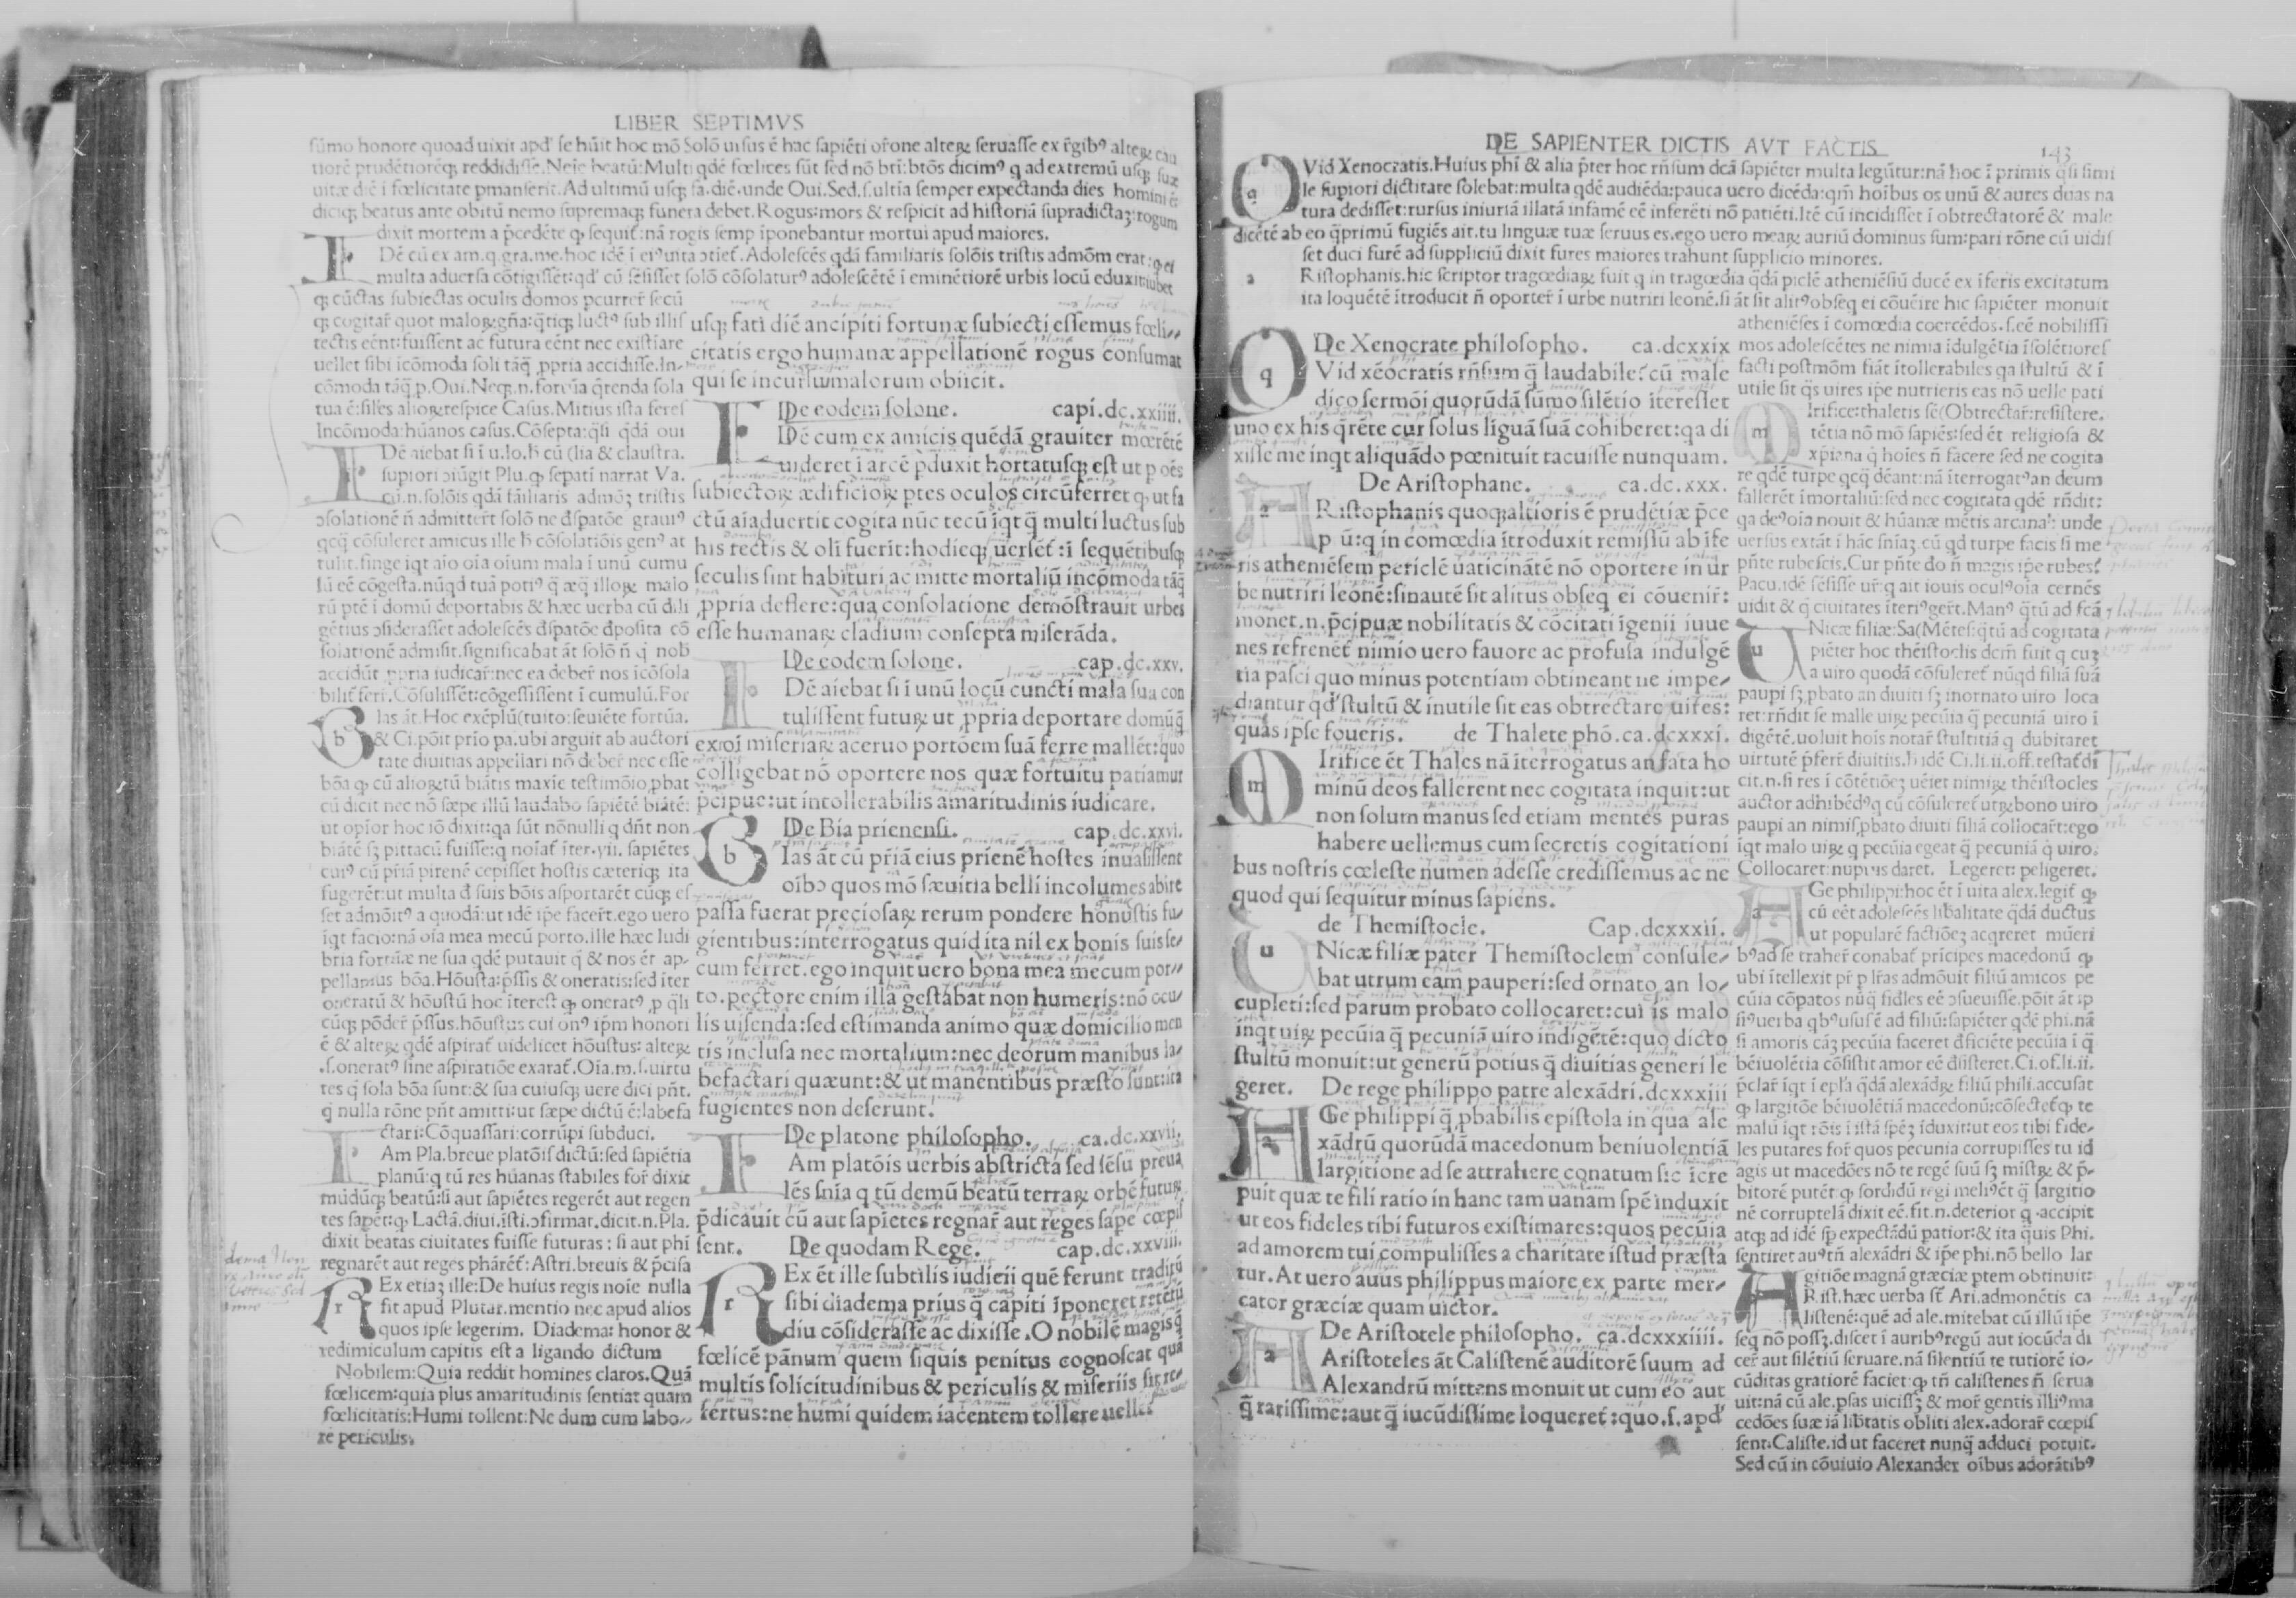 LIBER SEPTIMVS
sūmo honore quoad uixit apd' se hūit hoc mō Solō uisus ē hac sapiēti orōne alteꝝ seruasse ex rēgibꝰ alteꝝ cau
tiorē prudētiorēqꝫ reddidisse. Neie beatū: Multi qdē fœlices sūt sed nō bti: btōs dicimꝰ q ad extremū usqꝫ suæ
uitæ diē i fœlicitate pmanserit. Ad ultimū usqꝫ fa. diē. unde Oui. Sed. s. ultia semper expectanda dies homini ē:
diciqꝫ beatus ante obitū nemo supremaqꝫ funera debet. Rogus: mors & respicit ad historiā supradictaꝫ: rogum
dixit mortem a p̄cedēte qꝫ sequit̄: nā rogis semp īponebantur mortui apud maiores.
I Dē cū ex am. q. gra. me. hoc idē ī eiꝰ uita ↄtiet̄. Adolescēs qdā familiaris solōis tristis admōm erat: q ei
multa aduersa cōtigissēt: qd' cū sēsisset solō cōsolaturꝰ adolescētē i eminētiorē urbis locū eduxit iubet
qꝫ cūctas subiectas oculis domos pcurrer̄ secū
qꝫ cogitar̄ quot maloꝝ: gn̄a: q̄tiqꝫ luctꝰ sub illis
tectis eēnt: fuissent ac futura eēnt nec existiare
uellet sibi icōmoda soli tāq̄ ꝓpria accidisse. In-
cōmoda tāq̄. p. Oui. Neqꝫ. n. fortūa q̄renda sola
tua ē: siles alioꝝ respice Casus. Mitius ista feres
Incōmoda: hūanos casus. Cōsepta: q̄si qdā oui
I Dē aiebat si ī u. lo. h̄ cū (lia & claustra.
supiori ↄiūgit Plu. qꝫ sepati narrat Va.
cū. n. solōis qdā fāiliaris admōꝫ tristis
ↄsolationē n̄ admitterſt solō ne d̄spatōe grauiꝰ
qcq̄ cōsuleret amicus ille h̄ cōsolatiōis genꝰ at
tulit. finge iqt aio oia oium mala ī unū cumu
lū eē cōgesta. nūqd tua potiꝰ q̄ æq̄ illoꝝ malo
rū ptē i domū deportabis & hæc uerba cū dili
gētius ↄsiderasset adolescēs d̄spatōe d̄posita cō
solationē admisit. significabat āt solō n̄ q̄ nob
accidūt ꝓpria iudicar̄: nec ea deber̄ nos icōsola
bilit̄ ferī. Cōsulissēt: cōgessissent ī cumulū. For
B Ias āt. Hoc exēplū (tuito: seuiēte fortūa.
& Ci. pōit prio pa. ubi arguit ab auctori
tate diuitias appellari nō deber̄ nec esse
bōa qꝫ cū alioꝝ tū biātis maxie testimōio ꝓbat
cū dicit nec nō sæpe illū laudabo sapiētē biātē:
ut opior hoc iō dixit: qa sūt nōnulli q dn̄t non
biātē sꝫ pittacū fuisse: q noiat̄ iter. vii. sapiētes
cuiꝰ cū pr̄iā pirenē cepisset hostis cæteriqꝫ ita
fugerēt: ut multa d̄ suis bōis asportarēt cūqꝫ es
set admōitꝰ a quodā: ut idē ip̄e facer̄t. ego uero
īqt facio: nā oīa mea mecū porto. ille hæc ludi
bria fortūæ ne sua qdē putauit q̄ & nos ēt ap-
pellamus bōa. Hōusta: p̄ssis & oneratis: sed iter
oneratū & hōustū hoc iterest qꝫ oneratꝰ ꝓ q̄li
cūqꝫ pōder̄ p̄ssus. hōustus cui onꝰ ip̄m honori
ē & alteꝝ qdē aspirat̄ uidelicet hōustus: alteꝝ
.s. oneratꝰ sine aspiratiōe exarat̄. Oīa. m. s. uirtu
tes q̄ sola bōa sunt: & sua cuiusqꝫ uere dici pn̄t.
q̄ nulla rōne pn̄t amitti: ut sæpe dictū ē: labefa
ctari: Cōquassari: corrūpi subduci.
F Am Pla. breue platōis dictū: sed sapiētia
planū: q tū res hūanas stabiles for̄ dixit
mūdūqꝫ beatū: si aut sapiētes regerēt aut regen
tes sapēt: qꝫ Lactā. diui. isti. ↄfirmar. dicit. n. Pla.
dixit beatas ciuitates fuisse futuras: si aut phi
regnarēt aut reges phārēt̄: Astri. breuis & p̄cisa
R Ex etiaꝫ ille: De huius regis noie nulla
fit apud Plutar. mentio nec apud alios
quos ipse legerim. Diadema: honor &
redimiculum capitis est a ligando dictum
Nobilem: Quia reddit homines claros. Quā
fœlicem: quia plus amaritudinis sentiat quam
fœlicitatis: Humi tollent: Ne dum cum labo-
re periculis.
usqꝫ fati diē ancipiti fortunæ subiecti essemus fœli-
citatis ergo humanæ appellationē rogus consumat
qui se incursui malorum obiicit.
De eodem solone. capi. dc. xxiiii.
I Dē cum ex amicis quēdā grauiter mœrētē
uideret ī arcē p̄duxit hortatusqꝫ est ut p oēs
subiectoꝝ ædificioꝝ ptes oculos circūferret qꝫ ut fa
ctū aiaduertit cogita nūc tecū īqt q̄ multi luctus sub
his tectis & olī fuerīt: hodieqꝫ uersēt̄: ī sequētibusqꝫ
seculis sint habituri ac mitte mortaliū incōmoda tāq̄
ꝓpria deflere: qua consolatione demōstrauit urbes
esse humanaꝝ cladium consepta miserāda.
De eodem solone. cap. dc. xxv.
I Dē aiebat si ī unū locū cuncti mala sua con
tulissent futuꝝ ut ꝓpria deportare domū q̄
ex cōi miseriaꝝ aceruo portōem suā ferre mallēt: quo
colligebat nō oportere nos quæ fortuitu patiamur
p̄cipue: ut intollerabilis amaritudinis iudicare.
De Bia prienensi. cap. dc. xxvi.
B Ias āt cū pr̄iā eius prienē hostes inuasissent
oībꝰ quos mō sæuitia belli incolumes abire
passa fuerat preciosaꝝ rerum pondere honustis fu-
gientibus: interrogatus quid ita nil ex bonis suis se-
cum ferret. ego inquit uero bona mea mecum por-
to. pectore enim illa gestabat non humeris: nō ocu-
lis uisenda: sed estimanda animo quæ domicilio men
tis inclusa nec mortalium: nec deorum manibus la-
befactari quæunt: & ut manentibus præsto sunt: ita
fugientes non deserunt.
De platone philosopho. ca. dc. xxvii.
F Am platōis uerbis abstricta sed sēsu preua
lēs sn̄ia q tū demū beatū terraꝝ orbē futuꝝ
p̄dicauit cū aut sapietes regnar̄ aut reges sape cœpis
sent. De quodam Rege. cap. dc. xxviii.
R Ex ēt ille subtilis iudicii quē ferunt traditū
sibi diadema prius q̄ capiti īponeret retētū
diu cōsiderasse ac dixisse. O nobilē magis q̄
fœlicē pānum quem siquis penitus cognoscat quā
multis solicitudinibus & periculis & miseriis sit re-
fertus: ne humi quidem iacentem tollere uellet
DE SAPIENTER DICTIS AVT FACTIS 143
Q Vid Xenocratis. Huius phi & alia p̄ter hoc rn̄sum dcā sapiēter multa legūtur: nā hoc ī primis q̄si simi
le supiori dictitare solebat: multa qdē audiēda: pauca uero dicēda: qm̄ hoībus os unū & aures duas na
tura dedisset: rursus iniuriā illatā infamē eē inferēti nō patiēti. Itē cū incidisset ī obtrectatorē & male
dicētē ab eo q̄primū fugiēs ait. tu linguæ tuæ seruus es. ego uero meaꝝ auriū dominus sum: pari rōne cū uidis
set duci furē ad suppliciū dixit fures maiores trahunt supplicio minores.
a Ristophanis. hic scriptor tragœdiaꝝ fuit q in tragœdia q̄dā piclē atheniēsiū ducē ex iferis excitatum
ita loquētē itroducit n̄ oporter̄ i urbe nutriri leonē. si āt sit alitꝰ obseq ei cōuēire hic sapiēter monuit
De Xenocrate philosopho. ca. dcxxix
Q Vid xēocratis rn̄sum q̄ laudabile: cū male
dico sermōi quorūdā sūmo silētio iteresset
uno ex his q̄rēte cur solus liguā suā cohiberet: qa di
xisse me inqt aliquādo pœnituit tacuisse nunquam.
De Aristophane. ca. dc. xxx.
A Ristophanis quoqꝫ altioris ē prudētiæ p̄ce
p ū: q in comœdia ītroduxit remissū ab ife
ris atheniēsem periclē uaticināte nō oportere in ur
be nutriri leonē: sinautē sit alitus obseq ei cōuenir̄:
monet. n. p̄cipuæ nobilitatis & cōcitati igenii iuue
nes refrenēt nimio uero fauore ac profusa indulgē
tia pasci quo minus potentiam obtineant ne impe-
diantur qd' stultū & inutile sit eas obtrectare uires:
quas ipse foueris. de Thalete phō. ca. dcxxxi.
M Irifice ēt Thales nā īterrogatus an fata ho
minū deos fallerent nec cogitata inquit: ut
non solum manus sed etiam mentes puras
habere uellemus cum secretis cogitationi
bus nostris cœleste numen adesse credissemus ac ne
quod qui sequitur minus sapiens.
de Themistocle. Cap. dcxxxii.
U Nicæ filiæ pater Themistoclem consule-
bat utrum eam pauperi: sed ornato an lo-
cupleti: sed parum probato collocaret: cui is malo
inqt uiꝝ pecūia q̄ pecuniā uiro indigētē: quo dicto
stultū monuit: ut generū potius q̄ diuitias generi le
geret. De rege philippo patre alexādri. dcxxxiii
A Ge philippi q̄ ꝓbabilis epistola in qua ale
xādrū quorūdā macedonum beniuolentiā
largitione ad se attrahere conatum sic īcre
puit quæ te fili ratio in hanc tam uanam spē induxit
ut eos fideles tibi futuros existimares: quos pecūia
ad amorem tui compulisses a charitate istud præsta
tur. At uero auus philippus maiore ex parte mer-
cator græciæ quam uictor.
De Aristotele philosopho. ca. dcxxxiiii.
A Aristoteles āt Calistenē auditorē suum ad
Alexandrū mittens monuit ut cum eo aut
q̄ rarissime: aut q̄ iucūdissime loqueret̄: quo. s. apd'
atheniēses i comœdia coercēdos. s. eē nobilissi
mos adolescētes ne nimia idulgētia isolētiores
facti postmōm fiāt itollerabiles qa stultū & i
utile sit q̄s uires ip̄e nutrieris eas nō uelle pati
M Irifice: thaletis sē (Obtrectar̄: resistere.
tētia nō mō sapiēs: sed ēt religiosa &
xp̄iana q̄ hoīes n̄ facere sed ne cogita
re qdē turpe qcq̄ dēant: nā iterrogatꝰ an deum
fallerēt ī mortaliū: sed nec cogitata qdē rn̄dit:
qa deꝰ oīa nouit & hūanæ mētis arcana: unde
uersus extāt i hāc sn̄iaꝫ. cū qd turpe facis si me
pn̄te rubescis. Cur pn̄te do n̄ magis ip̄e rubes?
Pacu. idē sēsisse ur̄: q ait iouis oculꝰ oīa cernēs
uidit & q̄ ciuitates iteriꝰ ger̄t. Manꝰ q̄tū ad fcā
U Nicæ filiæ: Sa (Mētes: q̄tū ad cogitata
piēter hoc thēistoclis dcm̄ fuit q cuꝫ
a uiro quodā cōsuleret̄ nūqd filiā suā
paupi sꝫ ꝓbato an diuiti sꝫ inornato uiro loca
ret: rn̄dit se malle uiꝝ pecūia q̄ pecuniā uiro ī
digētē. uoluit hoīs notar̄ stultitiā q dubitaret
uirtutē p̄ferr̄ diuitiis. h̄ idē Ci. li. ii. off. testat̄ di
cit. n. si res i cōtētioēꝫ uēiet nimiꝝ thēistocles
auctor adhibēdꝰ q cū cōsuleret̄ utꝝ bono uiro
paupi an nimis ꝓbato diuiti filiā collocar̄t: ego
īqt malo uiꝝ q pecūia egeat q̄ pecuniā q̄ uiro.
Collocaret: nuptiis daret. Legeret: peligeret.
A Ge philippi: hoc ēt ī uita alex. legit̄ qꝫ
cū eēt adolescēs libalitate q̄dā ductus
ut popularē factiōeꝫ acqreret mūeri
bꝰ ad se traher̄ conabat̄ prīcipes macedonū qꝫ
ubi itellexit pr̄ p lr̄as admōuit filiū amicos pe
cūia cōpatos nūq̄ fidles eē ↄsueuisse. pōit āt ip
siꝰ uerba qbꝰ usus ē ad filiū: sapiēter qdē phi. nā
si amoris cāꝫ pecūia faceret d̄ficiēte pecūia i q̄
bēiuolētia cōsistit amor eē d̄sisteret. Ci. of. li. ii.
p̄clar̄ īqt i epl̄a q̄dā alexādꝝ filiū phili. accusat
qꝫ largitōe bēiuolētiā macedonū: cōsectet̄ qꝫ te
malū īqt rōis i istā spēꝫ iduxit: ut eos tibi fide-
les putares for̄ quos pecunia corrupisses tu id
agis ut macedōes nō te regē suū sꝫ mistꝝ & p̄-
bitorē putēt qꝫ sordidū regi meliꝰ ēt q̄ largitio
nē corruptelā dixit eē. fit. n. deterior q accipit
atqꝫ ad idē sp expectādū patior: & ita q̄uis Phi.
sentiret auꝰ tn̄ alexādri & ip̄e phi. nō bello lar
gitiōe magnā græciæ ptem obtinuit:
A Rist. hæc uerba st̄ Ari. admonētis ca
listenē: quē ad ale. mitebat cū illū ip̄e
seq nō possꝫ. discet i auribꝰ regū aut iocūda di
cer̄ aut silētiū seruare. nā silentiū te tutiorē io-
cūditas gratiorē faciet: qꝫ tn̄ calistenes n̄ serua
uit: nā cū ale. psas uicissꝫ & mor̄ gentis illiꝰ ma
cedōes suæ iā lib̄tatis obliti alex. adorar̄ cœpis
sent. Caliste. id ut faceret nunq̄ adduci potuit.
Sed cū in cōuiuio Alexander oībus adorātibꝰ